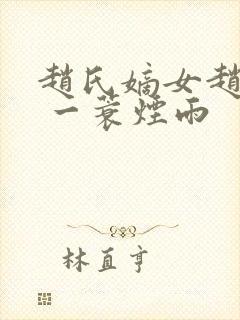 趙氏嫡女趙
一蓑煙雨
林直亨